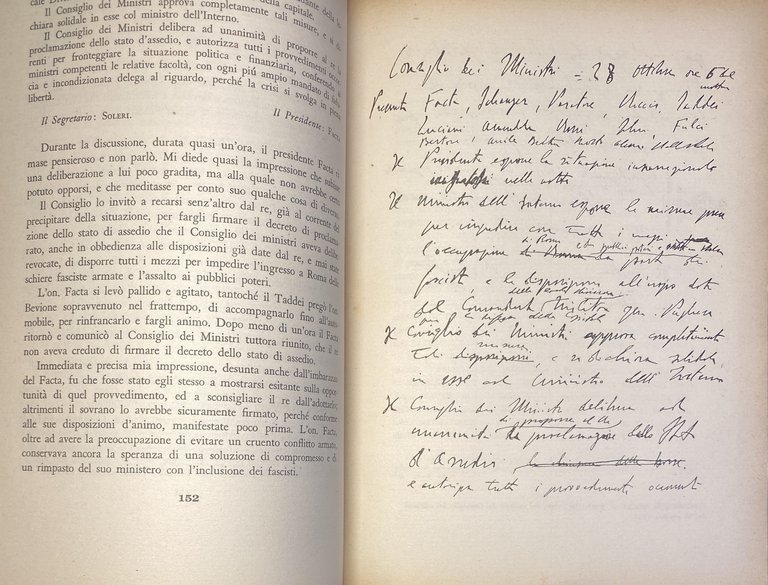 cale
Il Consiglio dei Ministri approva completamente tali misure, e si di-
chiara solidale in esse col ministro dell'Interno.
Il Consiglio dei Ministri delibera ad unanimità di proporre al re la
proclamazione dello stato d'assedio, e autorizza tutti i provvedimenti
renti per fronteggiare la situazione politica e finanziaria, conferendo ai
ministri competenti le relative facoltà, con ogni più ampio mandato di
cia e incondizionata delega al riguardo, perché la crisi si svolga in piena
libertà.
Il Segretario: SOLERI. Il Presidente: FACTA.
Durante la discussione, durata quasi un'ora, il presidente Facta ri-
mase pensieroso e non parlò. Mi diede quasi la impressione che subisse
una deliberazione a lui poco gradita, ma alla quale non avrebbe certo
potuto opporsi, e che meditasse per conto suo qualche cosa di diverso.
Il Consiglio lo invitò a recarsi senz'altro dal re, già al corrente del
precipitare della situazione, per fargli firmare il decreto di proclama-
zione dello stato di assedio che il Consiglio dei ministri aveva delibe-
rato, anche in obbedienza alle disposizioni già date dal re, e mai state
revocate, di disporre tutti i mezzi per impedire l'ingresso a Roma delle
schiere fasciste armate e l'assalto ai pubblici poteri.
L'on. Facta si levò pallido e agitato, tantoché il Taddei pregò l'on.
Bevione sopravvenuto nel frattempo, di accompagnarlo fino all'auto-
mobile, per rinfrancarlo e fargli animo. Dopo meno di un'ora il Facta
ritornò e comunicò al Consiglio dei Ministri tuttora riunito, che il re
non aveva creduto di firmare il decreto dello stato di assedio.
Immediata e precisa mia impressione, desunta anche dall'imbarazzo
del Facta, fu che fosse stato egli stesso a mostrarsi esitante sulla oppor-
tunità di quel provvedimento, ed a sconsigliare il re dall'adottarlo;
altrimenti il sovrano lo avrebbe sicuramente firmato, perché conforme
alle sue disposizioni d'animo, manifestate poco prima. L'on. Facta,
oltre ad avere la preoccupazione di evitare un cruento conflitto armato,
conservava ancora la speranza di una soluzione di compromesso e di
un rimpasto del suo ministero con l'inclusione dei fascisti.
152
Consiglio dei Ministri = 28 ottobre ore 6
Facta, Schanzer, Taddei
Luciani
Presidente espone la situazione
nella notte
Ministro dell'Interno espone le misure prese
per impedire con tutti i mezzi
l'occupazione di Roma
fascisti, e le disposizioni all'uopo date
dal Comandante gen. Pugliese
Consiglio dei Ministri approva completamente
tali misure, e si dichiara solidale
in esse col ministro dell'Interno
Consiglio dei Ministri delibera ad
unanimità di proporre al re la proclamazione dello stato
d'assedio
e autorizza tutti i provvedimenti occorrenti